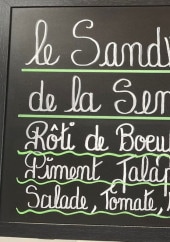 le Sandw
de la Sem
Rôti de Boeuf
Piment Jalap
Salade, Tomate,